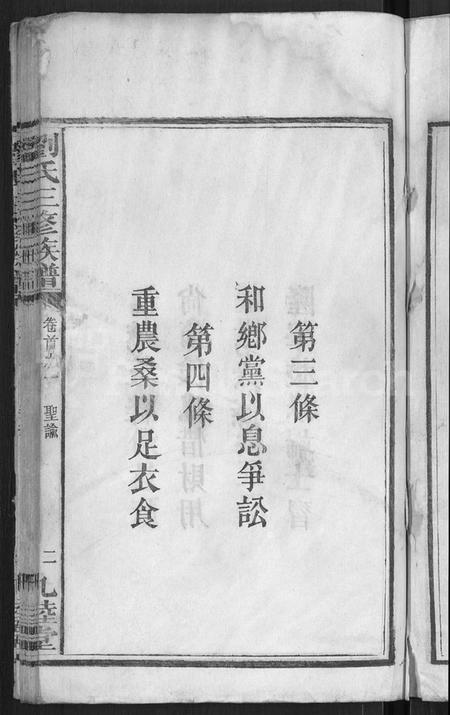 第三條
和鄉黨以息爭訟
第四條
重農桑以足衣食
劉氏三修族譜
卷首之一
聖諭
二
九睦堂